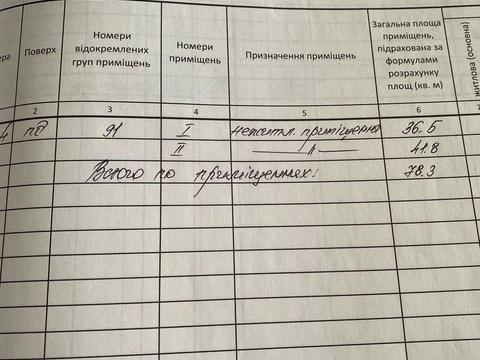 ера
Поверх
Номери відокремлених груп приміщень
Номери приміщень
Призначення приміщень
Загальна площа приміщень, підрахована за формулами розрахунку площ (кв. м)
житлова (основна)
2 3 4 5 6 7
пд 91 I нежитл. приміщення 36.5
II —— " —— 41.8
Всього по приміщеннях: 78.3